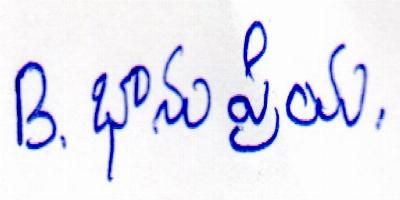 B. భాను ప్రియ.